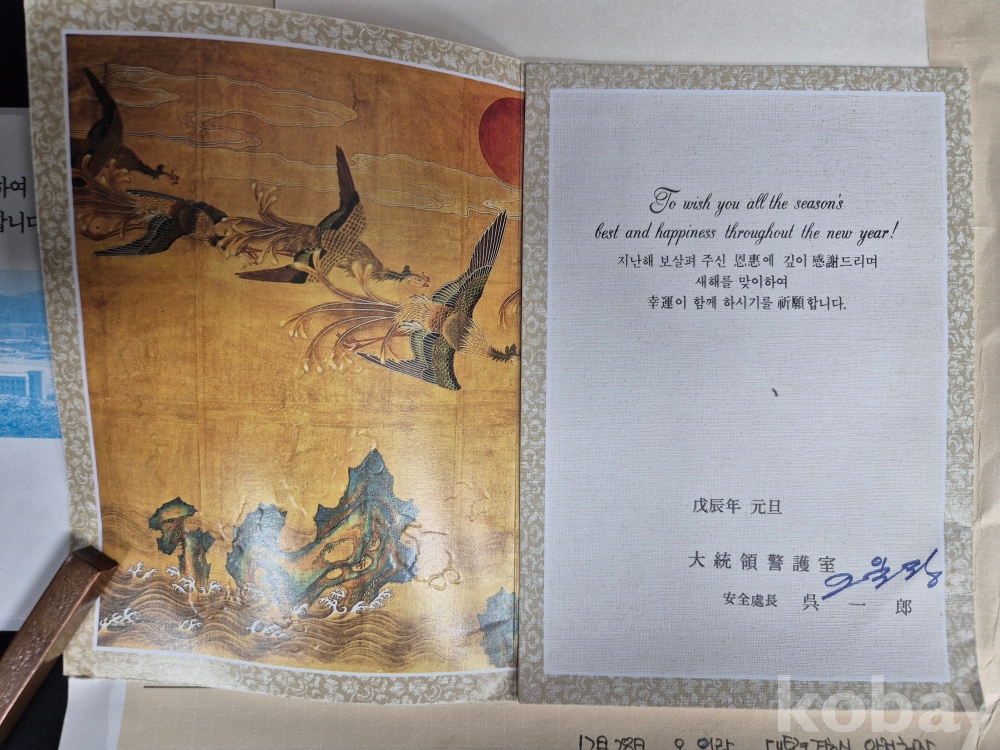 하여
합니다
To wish you all the season's
best and happiness throughout the new year!
지난해 보살펴 주신 恩惠에 깊이 感謝드리며
새해를 맞이하여
幸運이 함께 하시기를 祈願합니다.
戊辰年 元旦
大統領警護室
오일랑
安全處長 吳一郎
kobay
12月 28日 오일랑